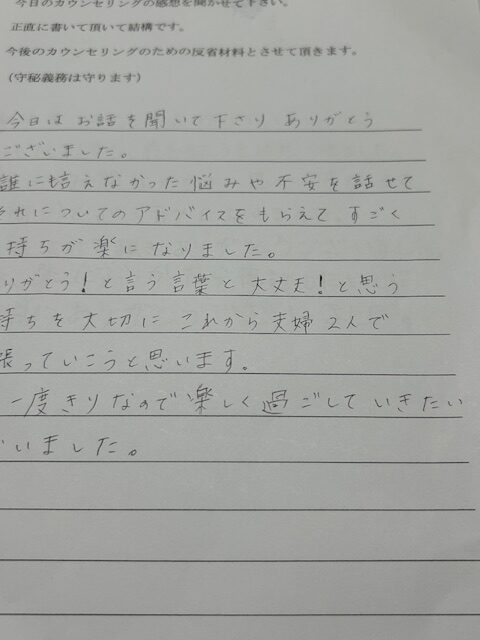 今日のカウンセリングの感想を聞かせて下さい。
正直に書いて頂いて結構です。
今後のカウンセリングのための反省材料とさせて頂きます。
(守秘義務は守ります)
今日はお話を聞いて下さり ありがとう
ございました。
誰に言えなかった悩みや不安を話せて
それについてのアドバイスをもらえて すごく
持ちが楽になりました。
りがとう!と言う言葉と大丈夫!と思う
持ちを大切に これから夫婦2人で
張っていこうと思います。
一度きりなので楽しく過ごしていきたい
いました。